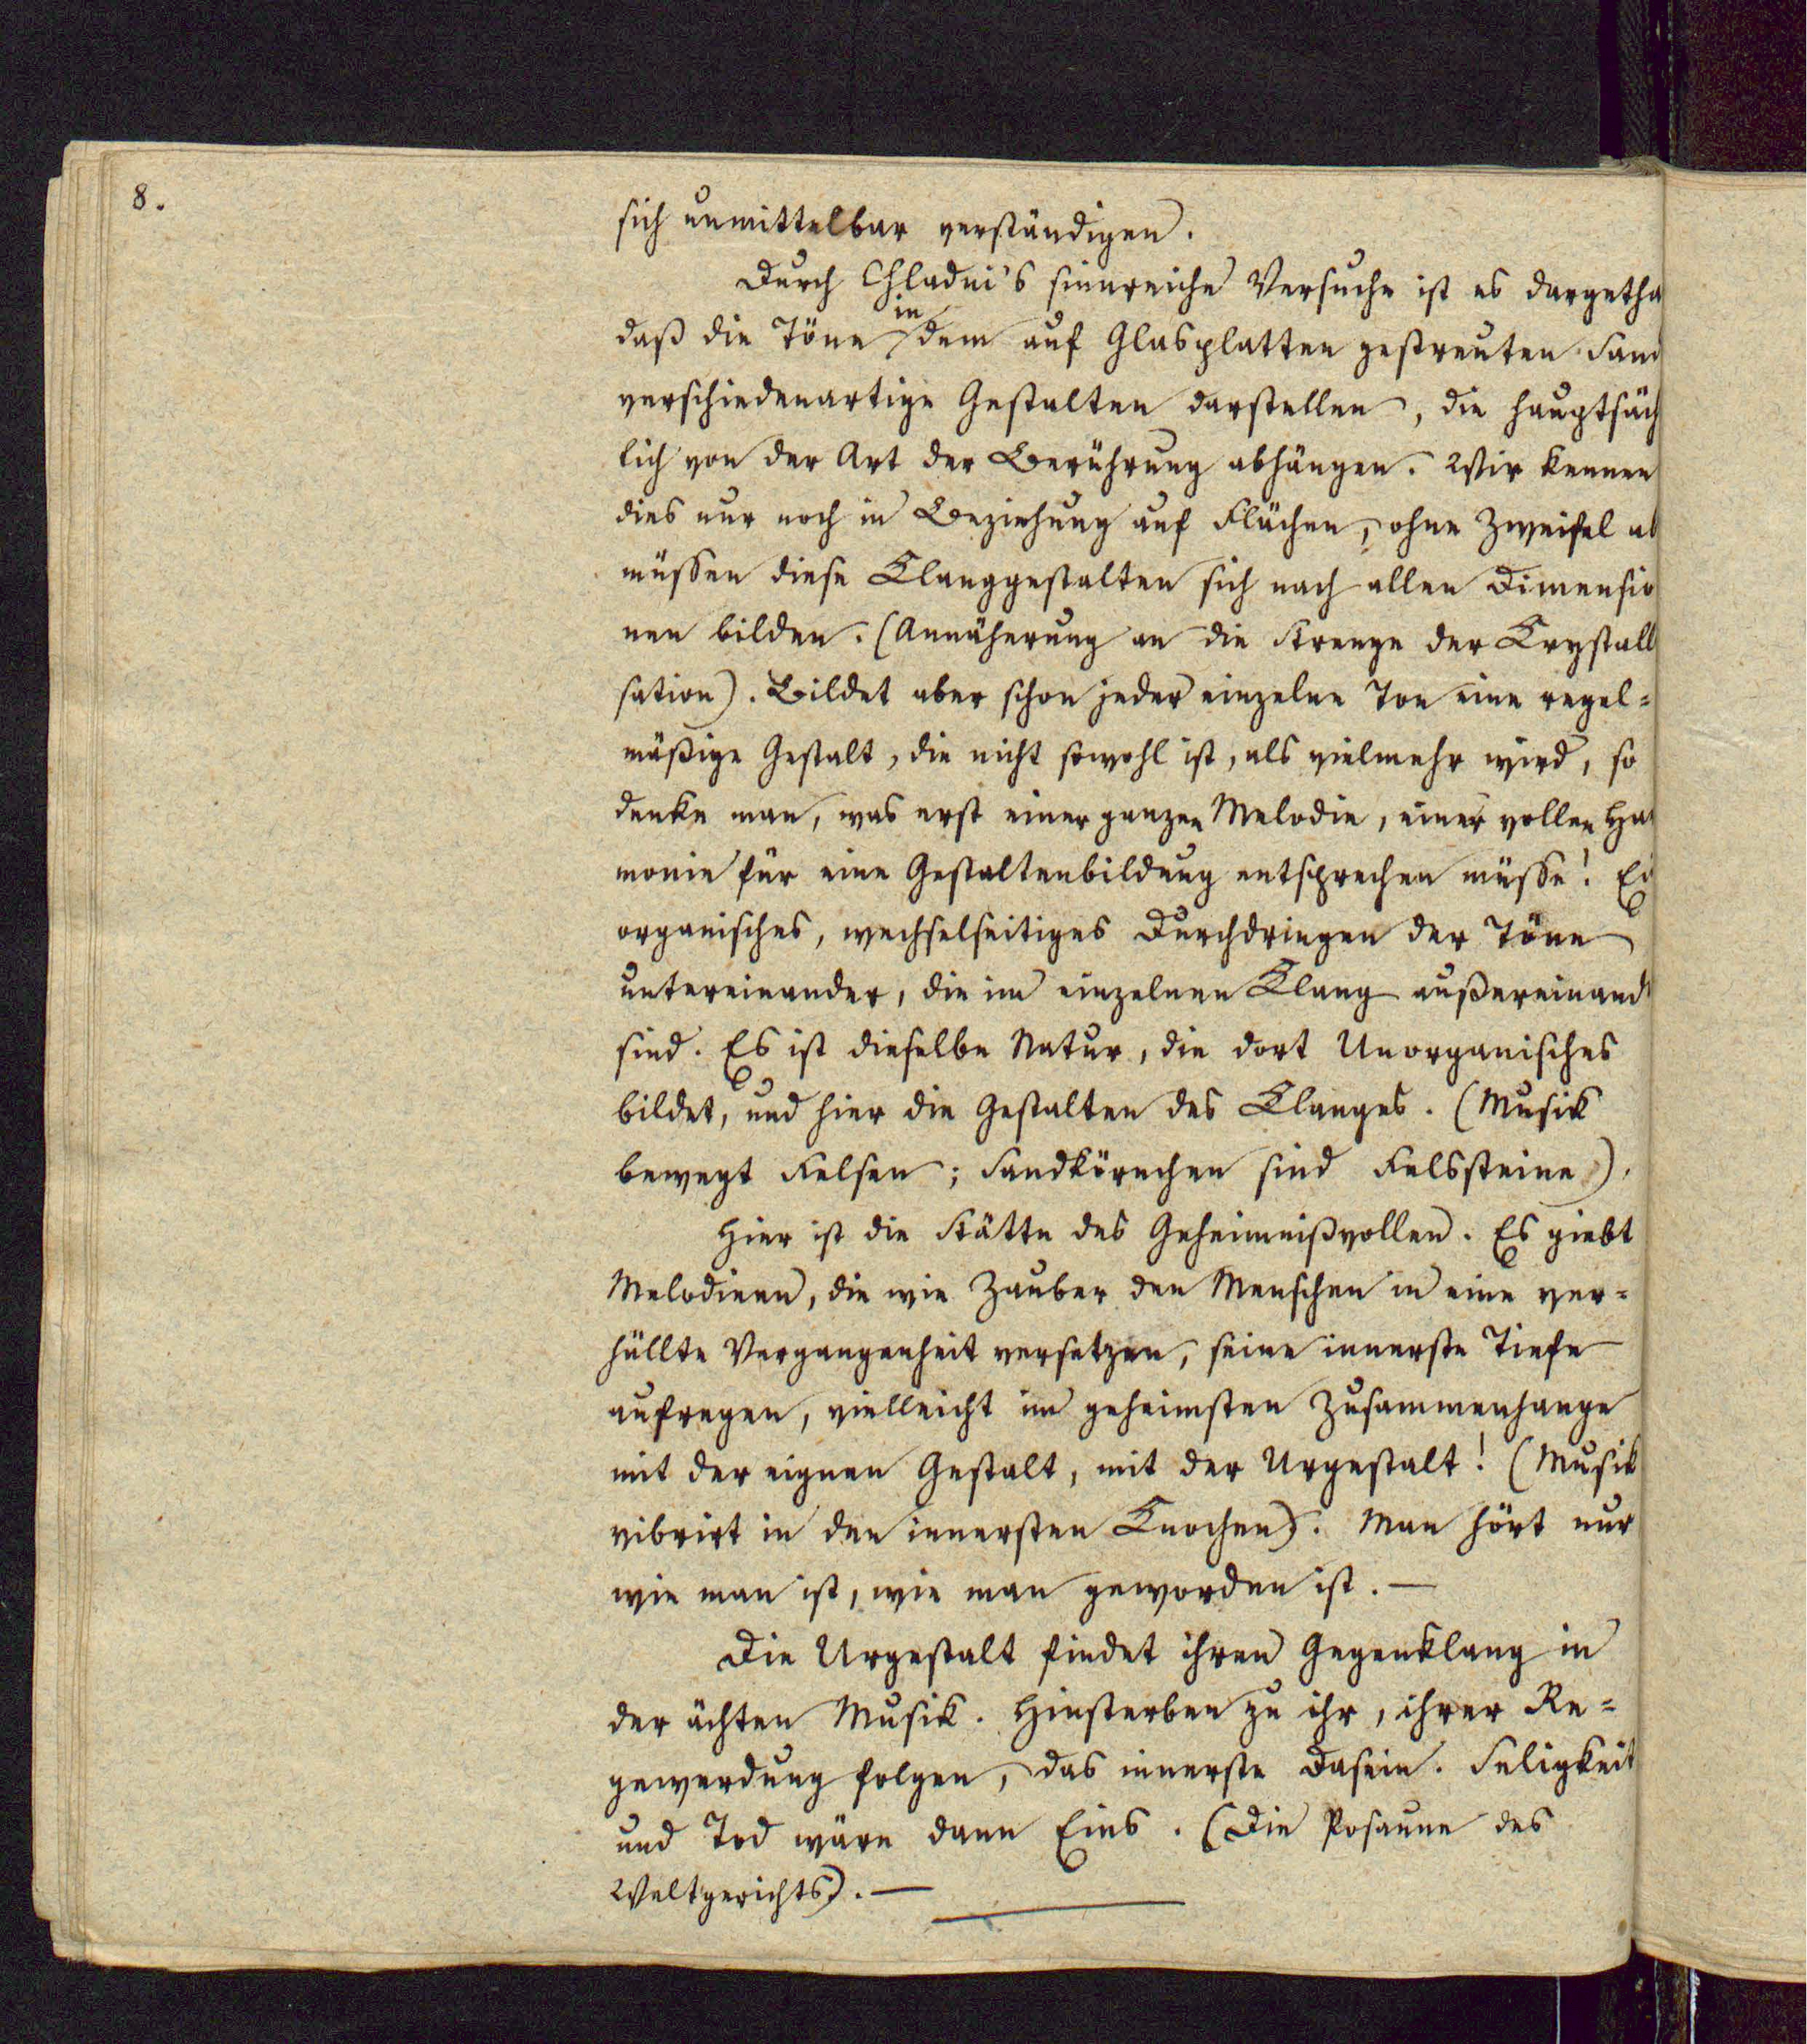 8.
sich unmittelbar verständigen.
Durch Chladni's sinnreiche Versuche ist es dargetha
in
daß die Töne dem auf Glasplatten gestreuten Sand
verschiedenartige Gestalten darstellen, die hauptsäch
lich von der Art der Berührung abhängen. Wir kennen
dies nur noch in Beziehung auf Flächen, ohne Zweifel ab
müssen diese Klanggestalten sich nach allen Dimensio
nen bilden. (Annäherung an die Strenge der Krystall
sation). Bildet aber schon jeder einzelne Ton eine regel=
mäßige Gestalt, die nicht sowohl ist, als vielmehr wird, so
denke man, was erst einer ganzen Melodie, einer vollen Har
monie für eine Gestaltenbildung entsprechen müsse! Ei
organisches, wechselseitiges Durchdringen der Töne
untereinander, die im einzelnen Klang außereinand
sind. Es ist dieselbe Natur, die dort Unorganisches
bildet, und hier die Gestalten des Klanges. (Musik
bewegt Felsen; Sandkörnchen sind Felssteine).
Hier ist die Stätte des Geheimnißvollen. Es giebt
Melodieen, die wie Zauber den Menschen in eine ver=
hüllte Vergangenheit versetzen, seine innerste Tiefe
aufregen, vielleicht im geheimsten Zusammenhange
mit der eignen Gestalt, mit der Urgestalt! (Musik
vibrirt in den innersten Knochen). Man hört nur
wie man ist, wie man geworden ist. —
Die Urgestalt findet ihren Gegenklang in
der ächten Musik. Hinsterben zu ihr, ihrer Re=
gewerdung folgen, das innerste Dasein. Seligkeit
und Tod wäre dann Eins. (Die Posaune des
Weltgerichts). —